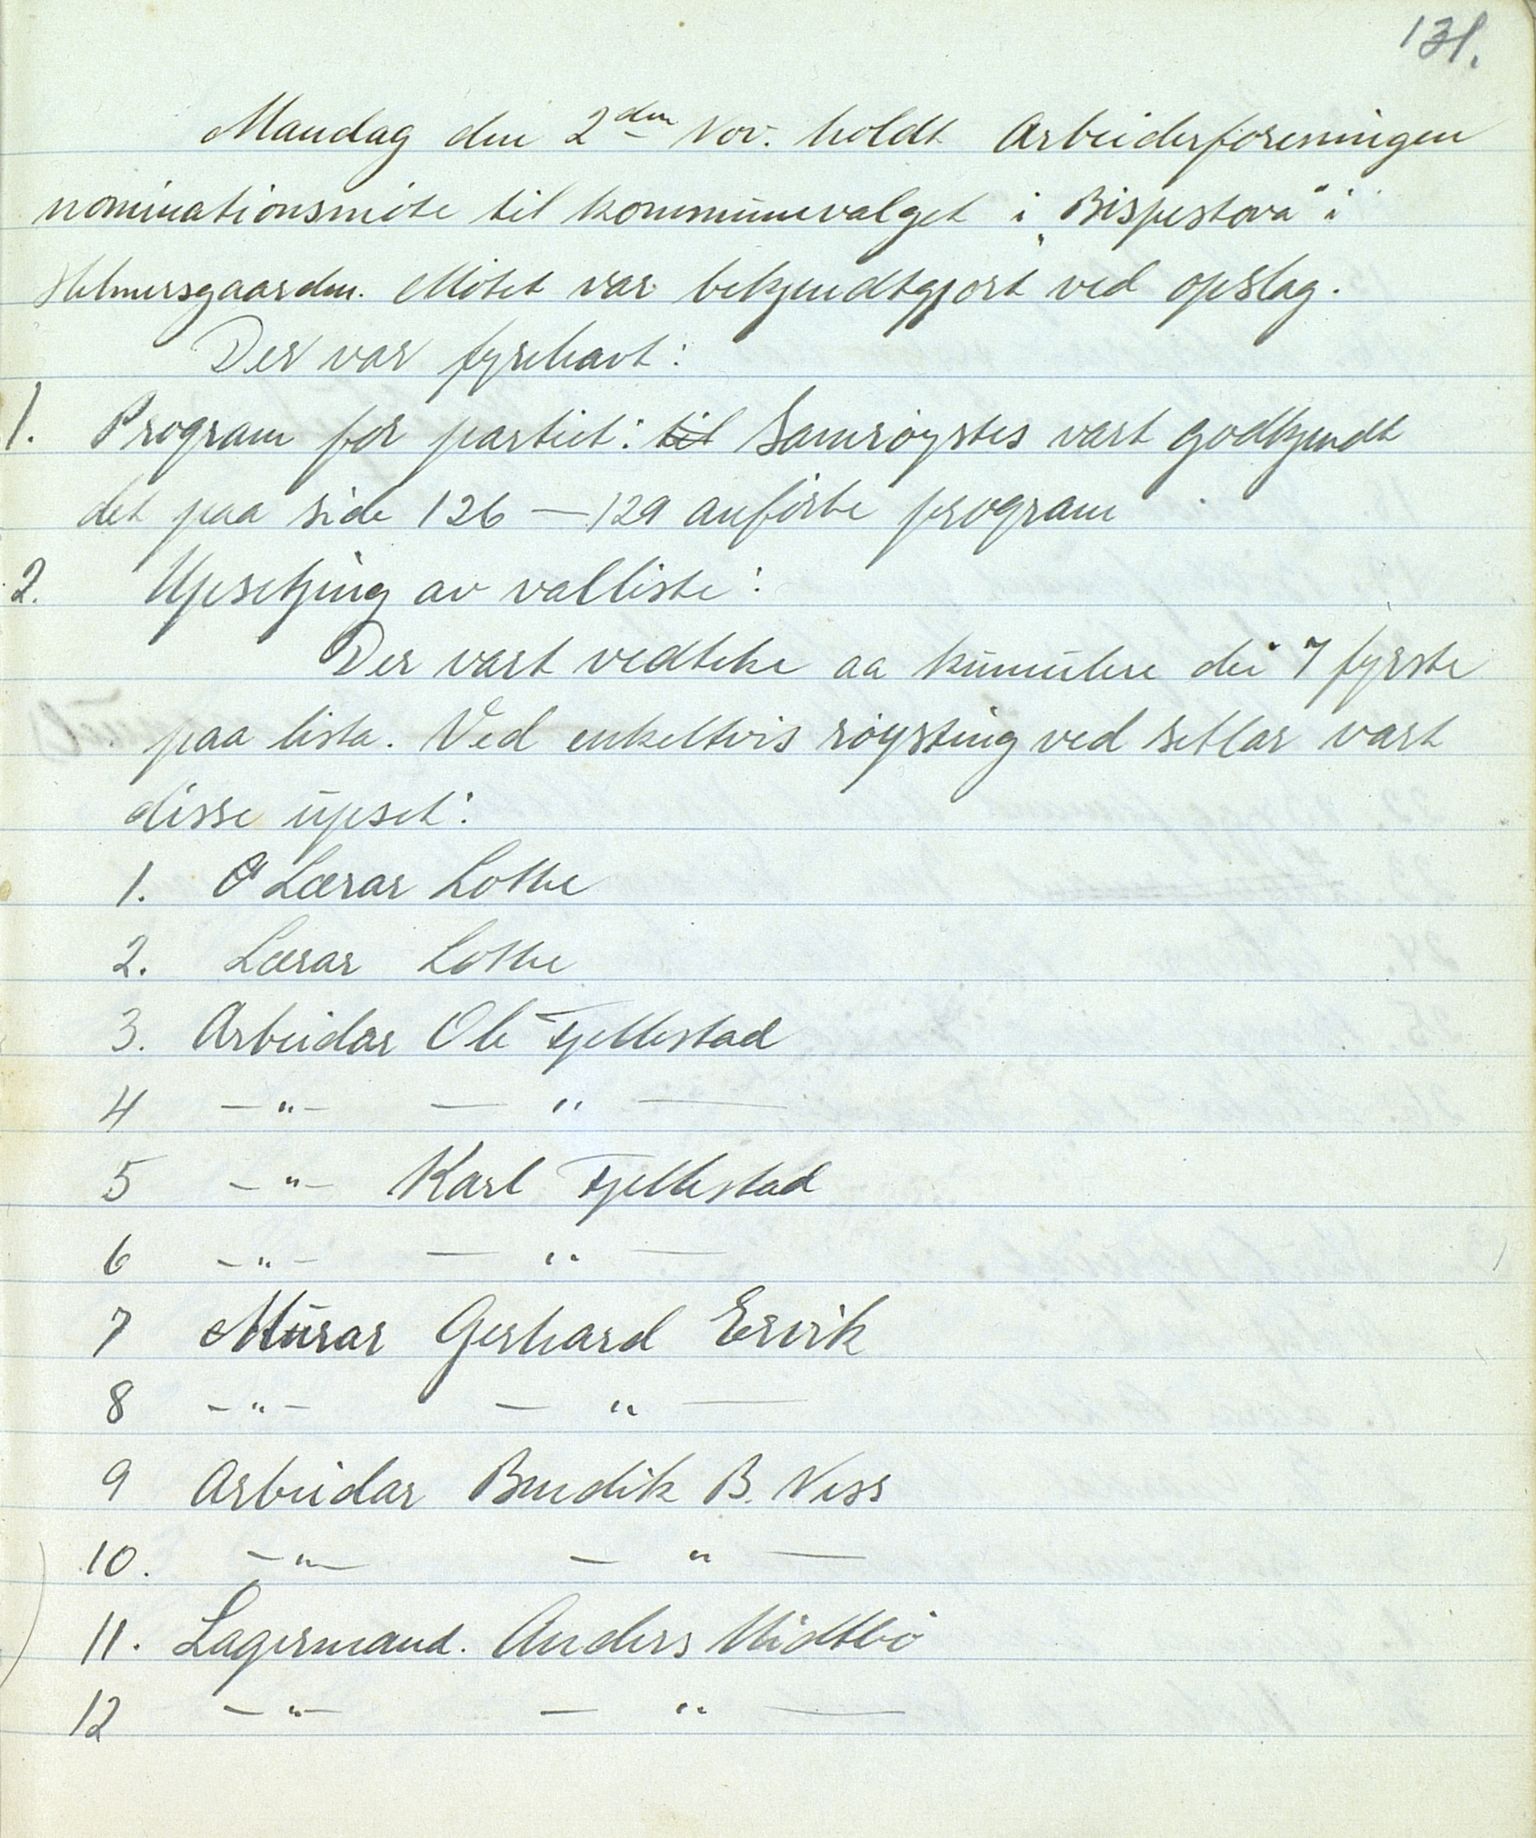 131.
Mandag den 2den Nov. holdt Arbeiderforeningen
nominationsmøte til kommunevalget i „Bispestova" i
Helmersgaarden. Møtet var bekjendtgjort ved opslag.
Der var fyrehavt:
1. Program for partiet: til Samrøystes vart godkjendt
det paa side 126 — 129 anførte program
2. Upsetjing av valliste:
Der vart vedteke aa kumulere dei 7 fyrste
paa lista. Ved enkeltvis røysting ved setlar vart
disse upset:
1. Lærar Lothe
2. Lærar Lothe
3. Arbeidar Ole Fjellestad
4 —„— — „ —
5 —„— Karl Fjellestad
6 —„— — „ —
7 Murar Gerhard Ervik
8 —„— — „ —
9 Arbeidar Bendik B. Ness
10. —„— — „ —
11. Lagermand. Anders Midtbø
12 —„— — „ —